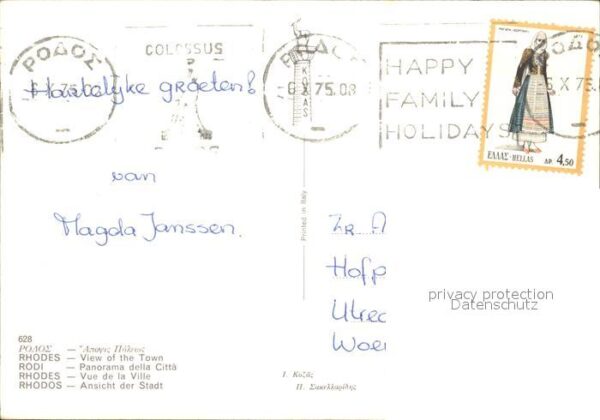 ΡΟΔΟΣ
COLOSSUS
ΡΟΔΟΣ
HAPPY
FAMILY
HOLIDAYS
6 X 75.08
ΕΛΛΑΣ-HELLAS ΔΡ. 4,50
Hartelijke groeten!
van
Magda Janssen.
Printed in Italy
Zr A
Hofp
Utrec
Woer
privacy protection
Datenschutz
628
ΡΟΔΟΣ — Ἄποψις Πόλεως
RHODES — View of the Town
RODI — Panorama della Città
RHODES — Vue de la Ville
RHODOS — Ansicht der Stadt
Ι. Κοζᾶς
Π. Σακελλαρίδης